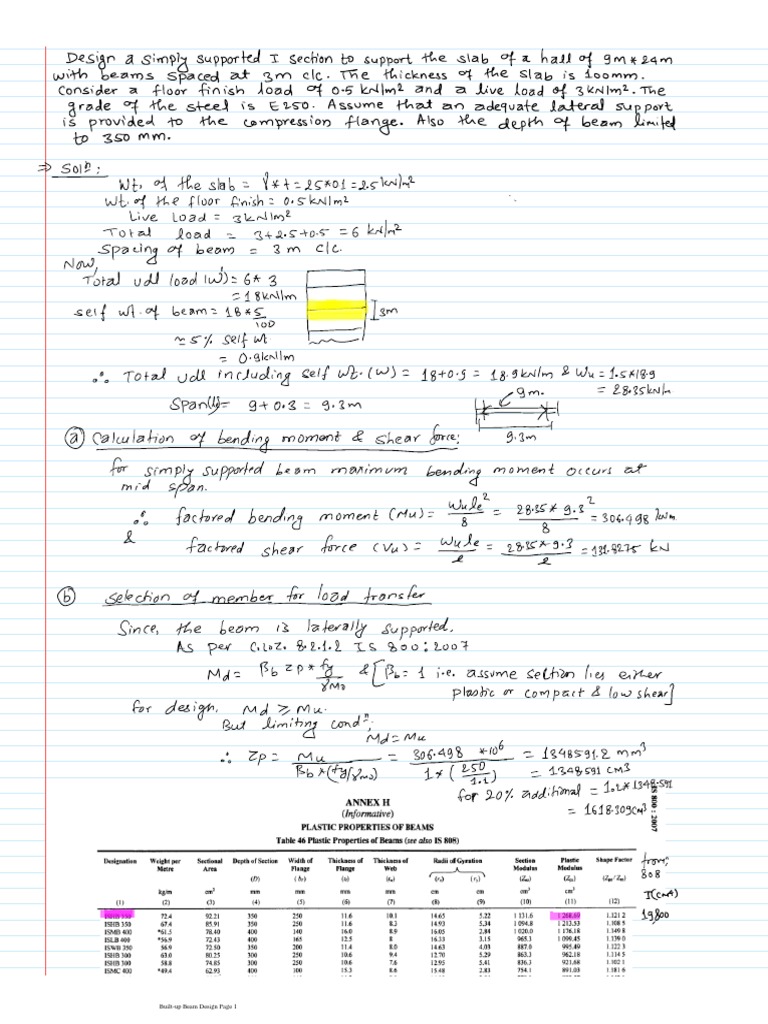 Design a simply supported I section to support the slab of a hall of 9m*24m
with beams spaced at 3m c/c. The thickness of the slab is 100mm.
Consider a floor finish load of 0.5 kN/m2 and a live load of 3kN/m2. The
grade of the steel is E250. Assume that an adequate lateral support
is provided to the compression flange. Also the depth of beam limited
to 350 mm.
⇒ Soln:
Wt. of the slab = γ*t = 25*01 = 2.5 kN/m2
Wt. of the floor finish = 0.5 kN/m2
Live load = 3kN/m2
Total load = 3+2.5+0.5 = 6 kN/m2
Spacing of beam = 3 m c/c.
Now,
Total udl load (w') = 6* 3
= 18kN/m
self wt. of beam = 18*5/100
3m
≈ 5% self wt
= 0.9kN/m
∴ Total udl including self wt. (w) = 18+0.9 = 18.9kN/m & Wu = 1.5*18.9
= 28.35kN/m
9m.
Span(le) = 9+0.3 = 9.3m
9.3m
(a) Calculation of bending moment & shear force:
for simply supported beam maximum bending moment occurs at
mid span.
∴ factored bending moment (Mu) = Wule²/8 = 28.35*9.3²/8 = 306.498 kNm
& factored shear force (Vu) = Wule/2 = 28.35*9.3/2 = 131.8275 kN
(b) selection of member for load transfer
Since, the beam is laterally supported.
As per C.l.n. 8.2.1.2 IS 800:2007
Md = βb Zp * fy/γm0 & [βb = 1 i.e. assume section lies either
plastic or compact & low shear]
for design, Md ≥ Mu.
But limiting condn,
Md = Mu
∴ Zp = Mu/βb*(fy/γm0) = 306.498 *10⁶/1*(250/1.1) = 1348591.2 mm³
= 1348.591 cm3
for 20% additional = 1.2*1348.591
= 1618.309cm3
IS 800 : 2007
ANNEX H
(Informative)
PLASTIC PROPERTIES OF BEAMS
Table 46 Plastic Properties of Beams (see also IS 808)
Designation Weight per Metre Sectional Area Depth of Section Width of Flange Thickness of Flange Thickness of Web Radii of Gyration Section Modulus Plastic Modulus Shape Factor
(D) (bf) (tf) (tw) (rz) (ry) (Zez) (Zpz) (Zpz/Zez)
kg/m cm² mm mm mm mm cm cm cm³ cm³
(1) (2) (3) (4) (5) (6) (7) (8) (9) (10) (11) (12)
from, 808
I(cm4)
19,800
ISHB 350 72.4 92.21 350 250 11.6 10.1 14.65 5.22 1 131.6 1 268.69 1.121 2
ISHB 350 67.4 85.91 350 250 11.6 8.3 14.93 5.34 1 094.8 1 213.53 1.108 5
ISMB 400 *61.5 78.40 400 140 16.0 8.9 16.05 2.84 1 020.0 1 176.18 1.149 8
ISLB 400 *56.9 72.43 400 165 12.5 8 16.33 3.15 965.3 1 099.45 1.139 0
ISWB 350 56.9 72.50 350 200 11.4 8.0 14.63 4.03 887.0 995.49 1.122 3
ISHB 300 63.0 80.25 300 250 10.6 9.4 12.70 5.29 863.3 962.18 1.114 5
ISHB 300 58.8 74.85 300 250 10.6 7.6 12.95 5.41 836.3 921.68 1.102 1
ISMC 400 *49.4 62.93 400 100 15.3 8.6 15.48 2.83 754.1 891.03 1.181 6
Built-up Beam Design Page 1